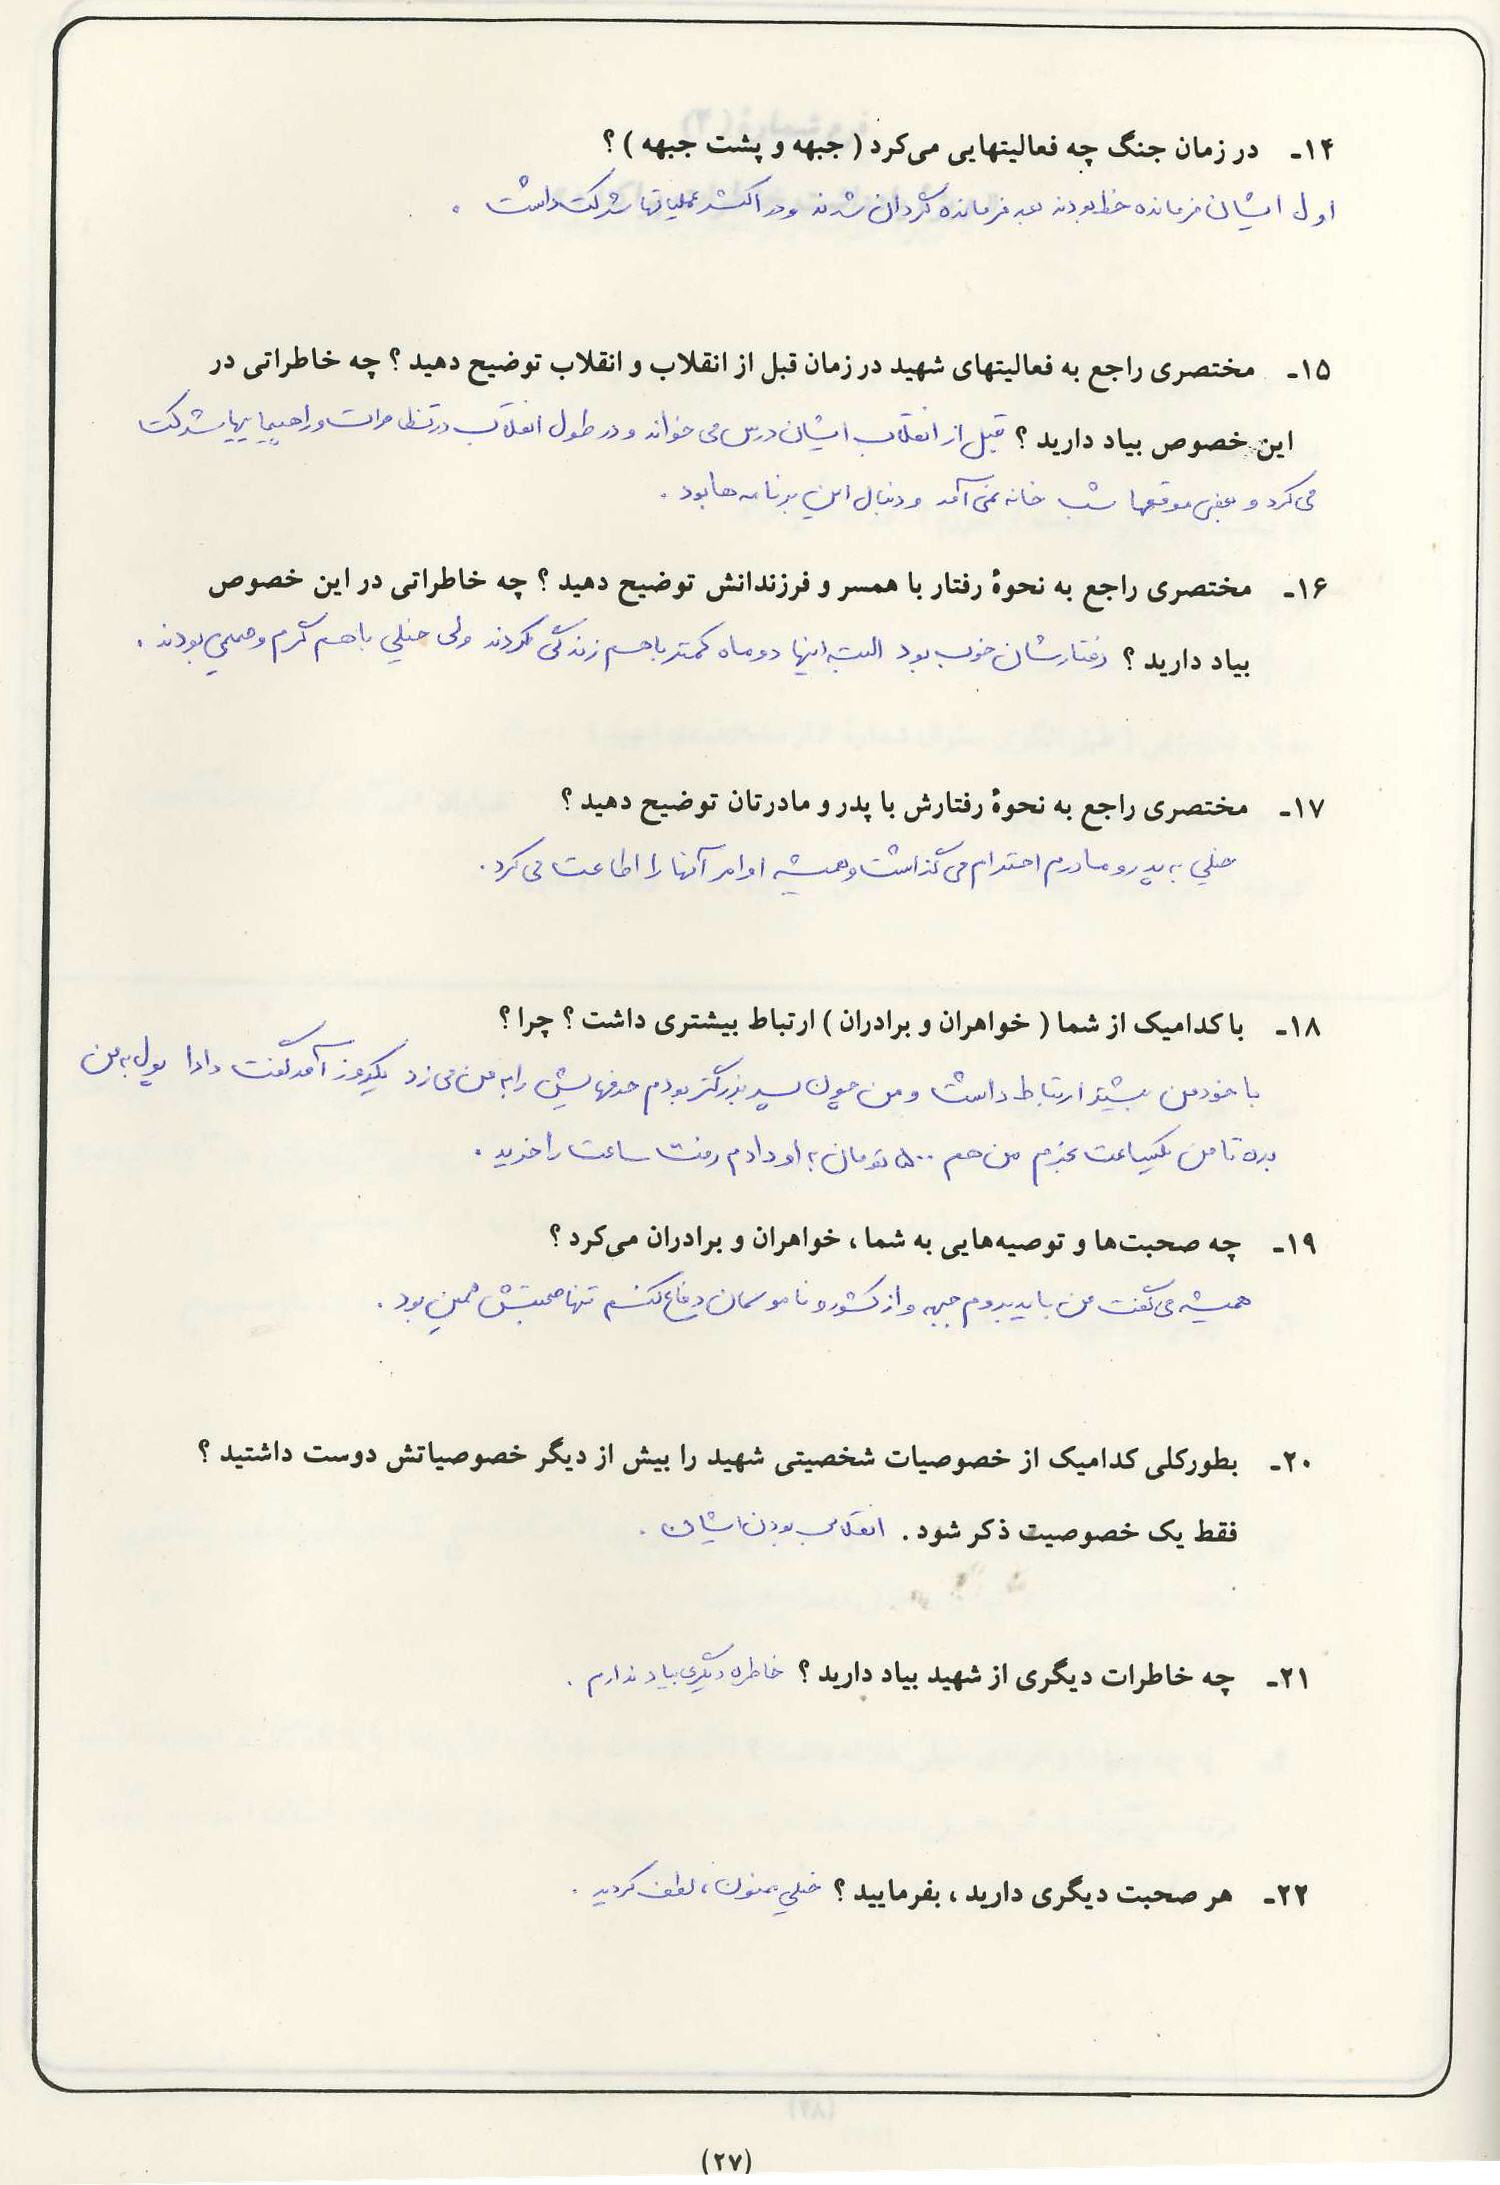 ۱۴ـ در زمان جنگ چه فعالیتهایی می‌کرد ( جبهه و پشت جبهه ) ؟
اول ایشان فرمانده خط بودند بعد فرمانده گردان شدند و در اکثر عملیاتها شرکت داشت .
۱۵ـ مختصری راجع به فعالیتهای شهید در زمان قبل از انقلاب و انقلاب توضیح دهید ؟ چه خاطراتی در
این خصوص بیاد دارید ؟ قبل از انقلاب ایشان درس می خواند و در طول انقلاب در تظاهرات و راهپیمایی‌ها شرکت
می کرد و بعضی موقعها شب خانه نمی آمد و دنبال این برنامه ها بود .
۱۶ـ مختصری راجع به نحوهٔ رفتار با همسر و فرزندانش توضیح دهید ؟ چه خاطراتی در این خصوص
بیاد دارید ؟ رفتارشان خوب بود البته اینها دو ماه کمتر با هم زندگی نکردند ولی خیلی با هم گرم و صمیمی بودند .
۱۷ـ مختصری راجع به نحوهٔ رفتارش با پدر و مادرتان توضیح دهید ؟
خیلی به پدر و مادرم احترام می گذاشت و همیشه اوامر آنها را اطاعت می کرد .
۱۸ـ با کدامیک از شما ( خواهران و برادران ) ارتباط بیشتری داشت ؟ چرا ؟
با خود من بیشتر ارتباط داشت و من چون پسر بزرگتر بودم حرفهایش را به من می زد یکروز آمد گفت دادا پول به من
بده تا من یکساعت بخرم من هم ۵۰۰ تومان به او دادم رفت ساعت را خرید .
۱۹ـ چه صحبت‌ها و توصیه‌هایی به شما ، خواهران و برادران می‌کرد ؟
همیشه می گفت من باید بروم جبهه و از کشور و ناموسمان دفاع کنم تنها صحبتش همین بود .
۲۰ـ بطورکلی کدامیک از خصوصیات شخصیتی شهید را بیش از دیگر خصوصیاتش دوست داشتید ؟
فقط یک خصوصیت ذکر شود . انقلابی بودن ایشان .
۲۱ـ چه خاطرات دیگری از شهید بیاد دارید ؟ خاطره دیگری بیاد ندارم .
۲۲ـ هر صحبت دیگری دارید ، بفرمایید ؟ خیلی ممنون ، لطف کردید .
(۲۷)